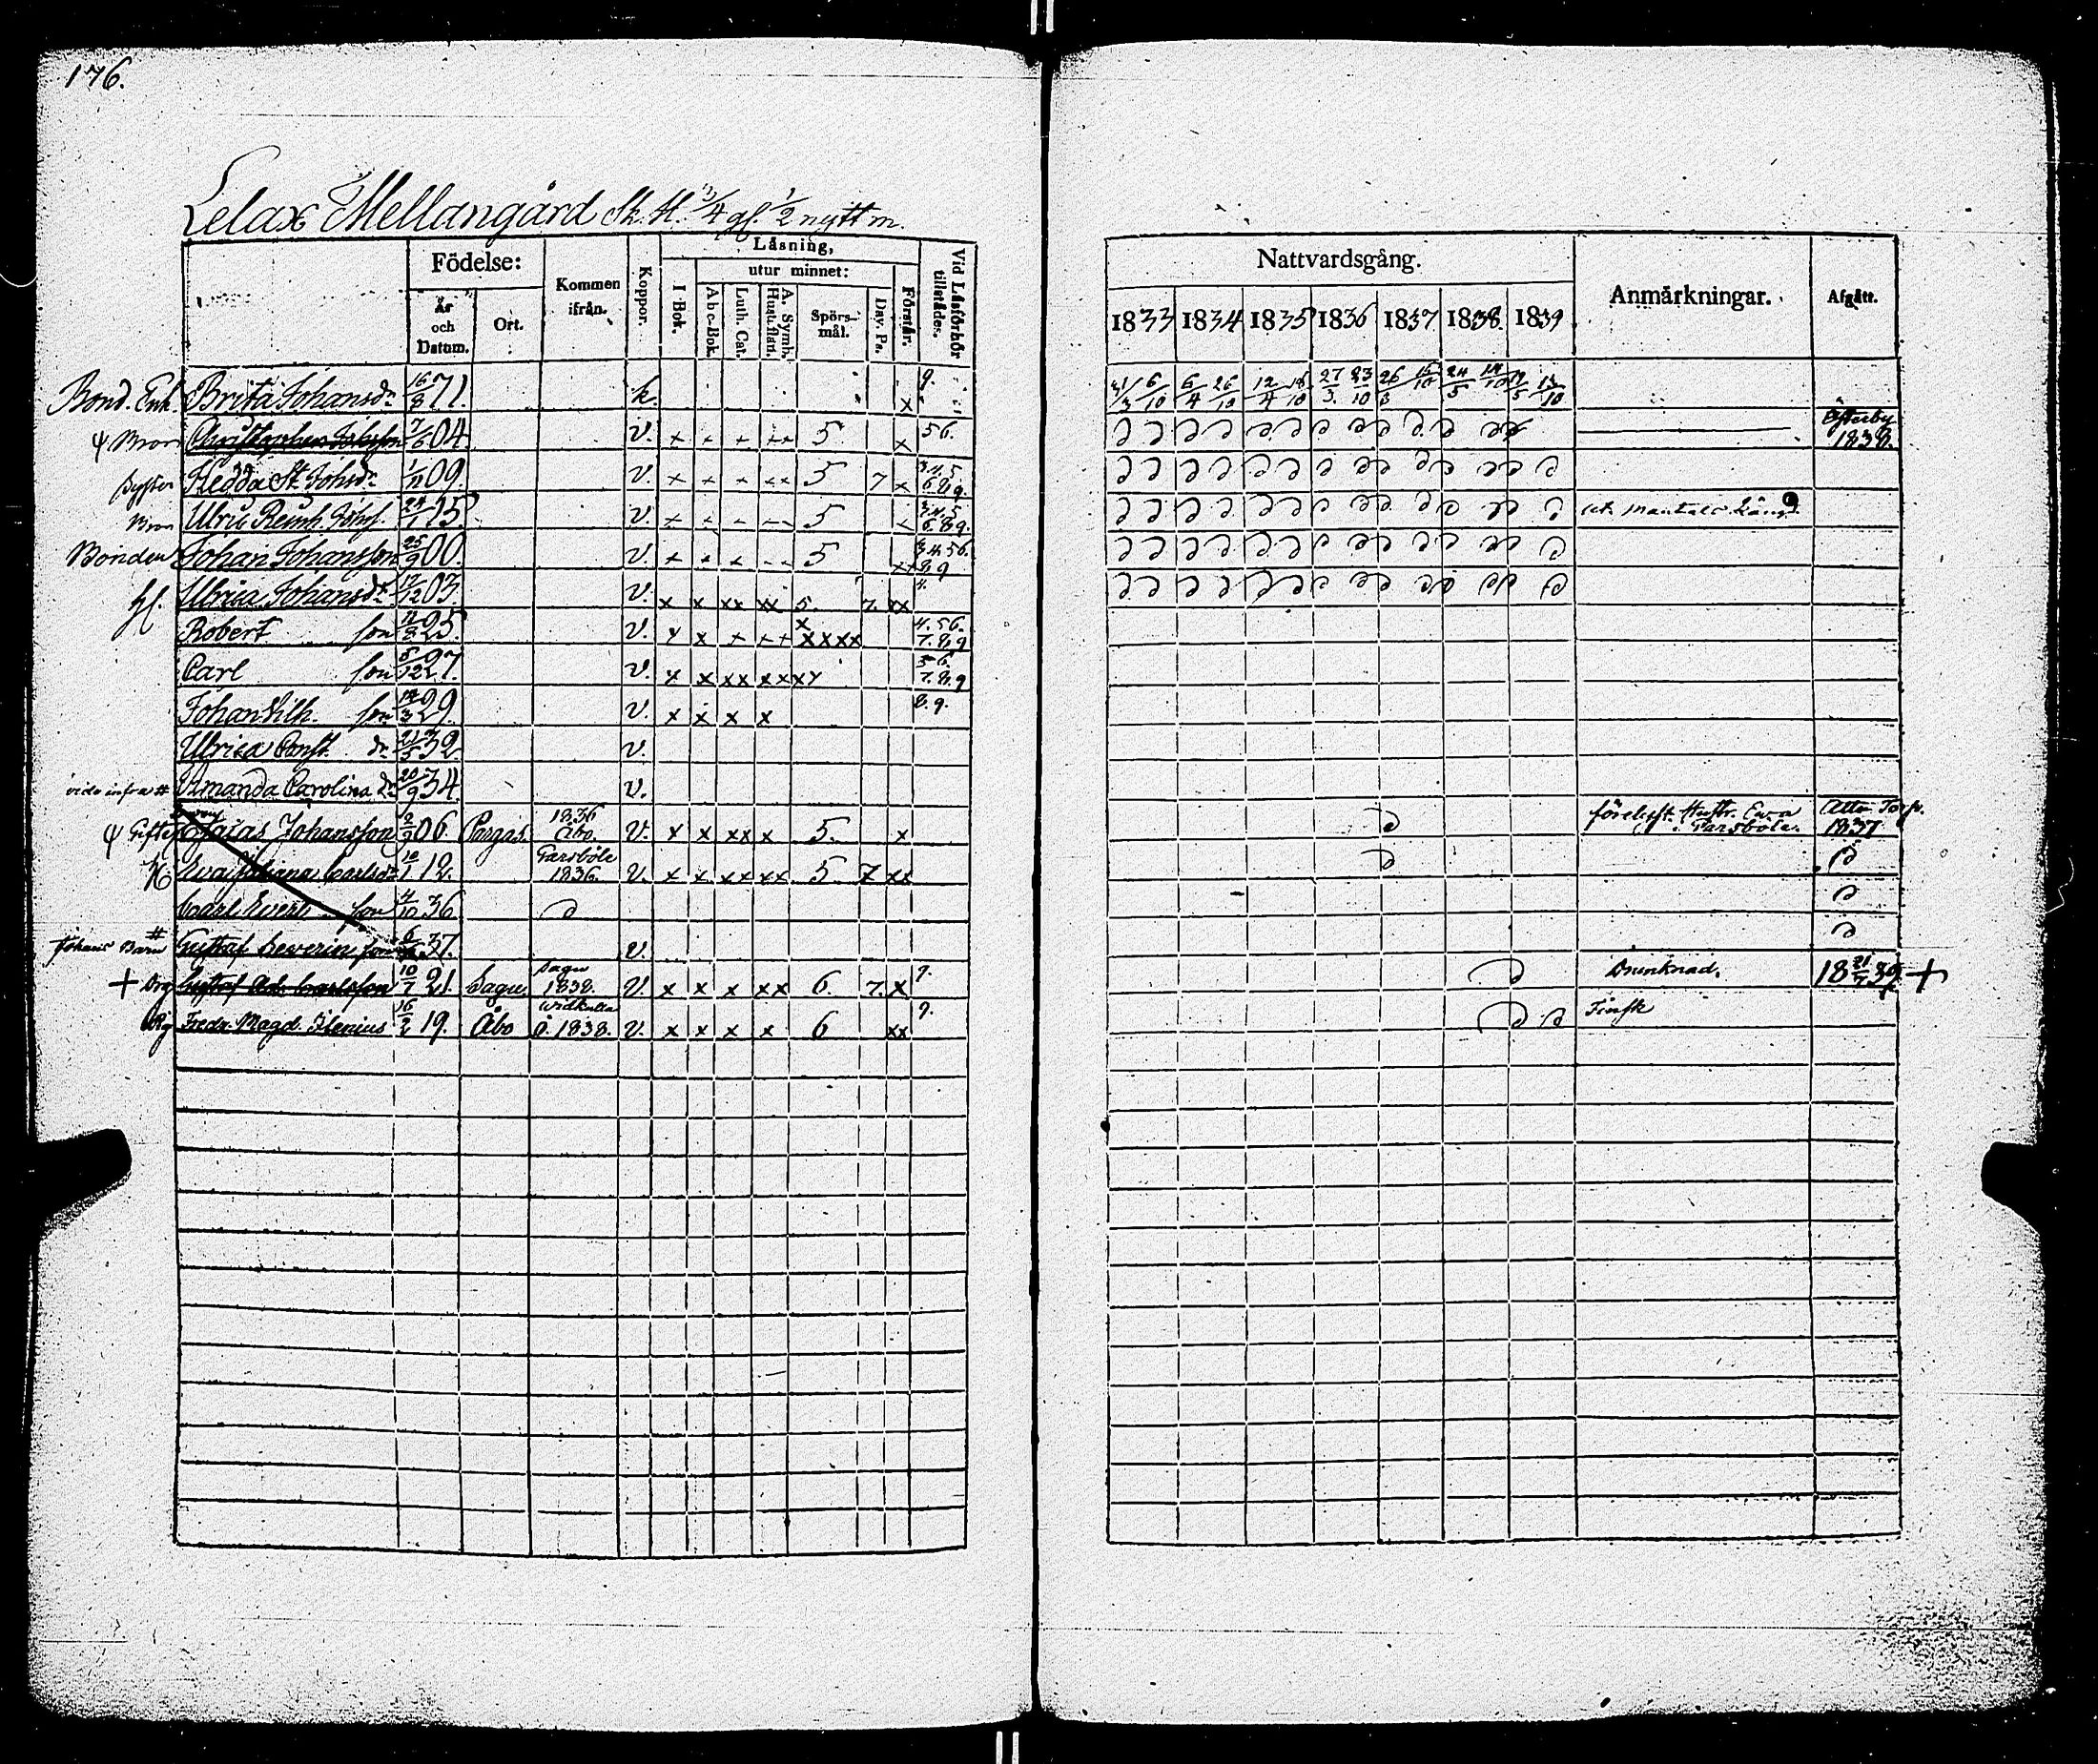 176.
Lelax Mellangård Sk. H. 3/4 gl. 1/2 nytt m.
Födelse:
År och Datum.
Ort.
Kommen ifrån.
Koppor.
Läsning,
I Bok.
utur minnet:
Abc-Bok.
Luth. Cat.
A. Symb. Hust. tafl.
Spörs-mål.
Dav. Ps.
Förstår.
Vid Läsförhör tillstädes.
Nattvardsgång.
1833 1834 1835 1836 1837 1838. 1839
Anmärkningar.
Afgått.
Bond. Enk. Brita Johansdr 16/8 71. k. x 9. 6/10 6/4 26/10 12/4 18/10 27/3 23/10 26/3 15/10 24/5 14/10 13/10
Bror Christopher Johsson 7/6 04. v. + + + ++ 5 x 56. Österby 1838.
Syster Hedda St. Johsdr 1/11 09. v. + + + ++ 5 7 x 3.4.5 6.8.9.
Bror Ulric Reinh. Johss. 24/1 15. v. + + 5 3.4.5 6.8.9.
Bonden Johan Johansson 25/9 00. v. + + + 5 x+ 3.4.56. 8.9
H. Ulrica Johansdr 17/12 03. v. x x xx xx 5. 7. xx 4.
Robert son 12/8 25. v. x x + ++ x xxxx 4.56. 7.8.9
Carl son 5/12 27. v. x x xx xxxx 56. 7.8.9
Johan Vilh. son 14/3 29. v. x x x x 8.9.
Ulrica Const. dr 21/5 32. v.
vide infra # Amanda Carolina dr 20/9 34. v.
Gifte Esaias Johansson 06 Pargas. 1836 Åbo. v. x x xx x 5. x förelyst Hustr. Eva Garsböle. 1837
H. Eva Juliana Carlsdr 10/1 12. Garsböle 1836. v. x x xx xx 5. 7 xx
Carl Evert son 4/10 36.
# Johans Barn Gustaf Severin son 37. v.
+ Drg Gustaf Ad. Carlsson 10/7 21. Sagu. Sagu 1838. v. x x x xx 6. 7. x 9. Drunknad. 18 21/7 39 +
Pig Fredr. Magd. Stenius 16/2 19. Åbo Widkulla Ö. 1838. v. x x x x 6 xx 9. Finsk